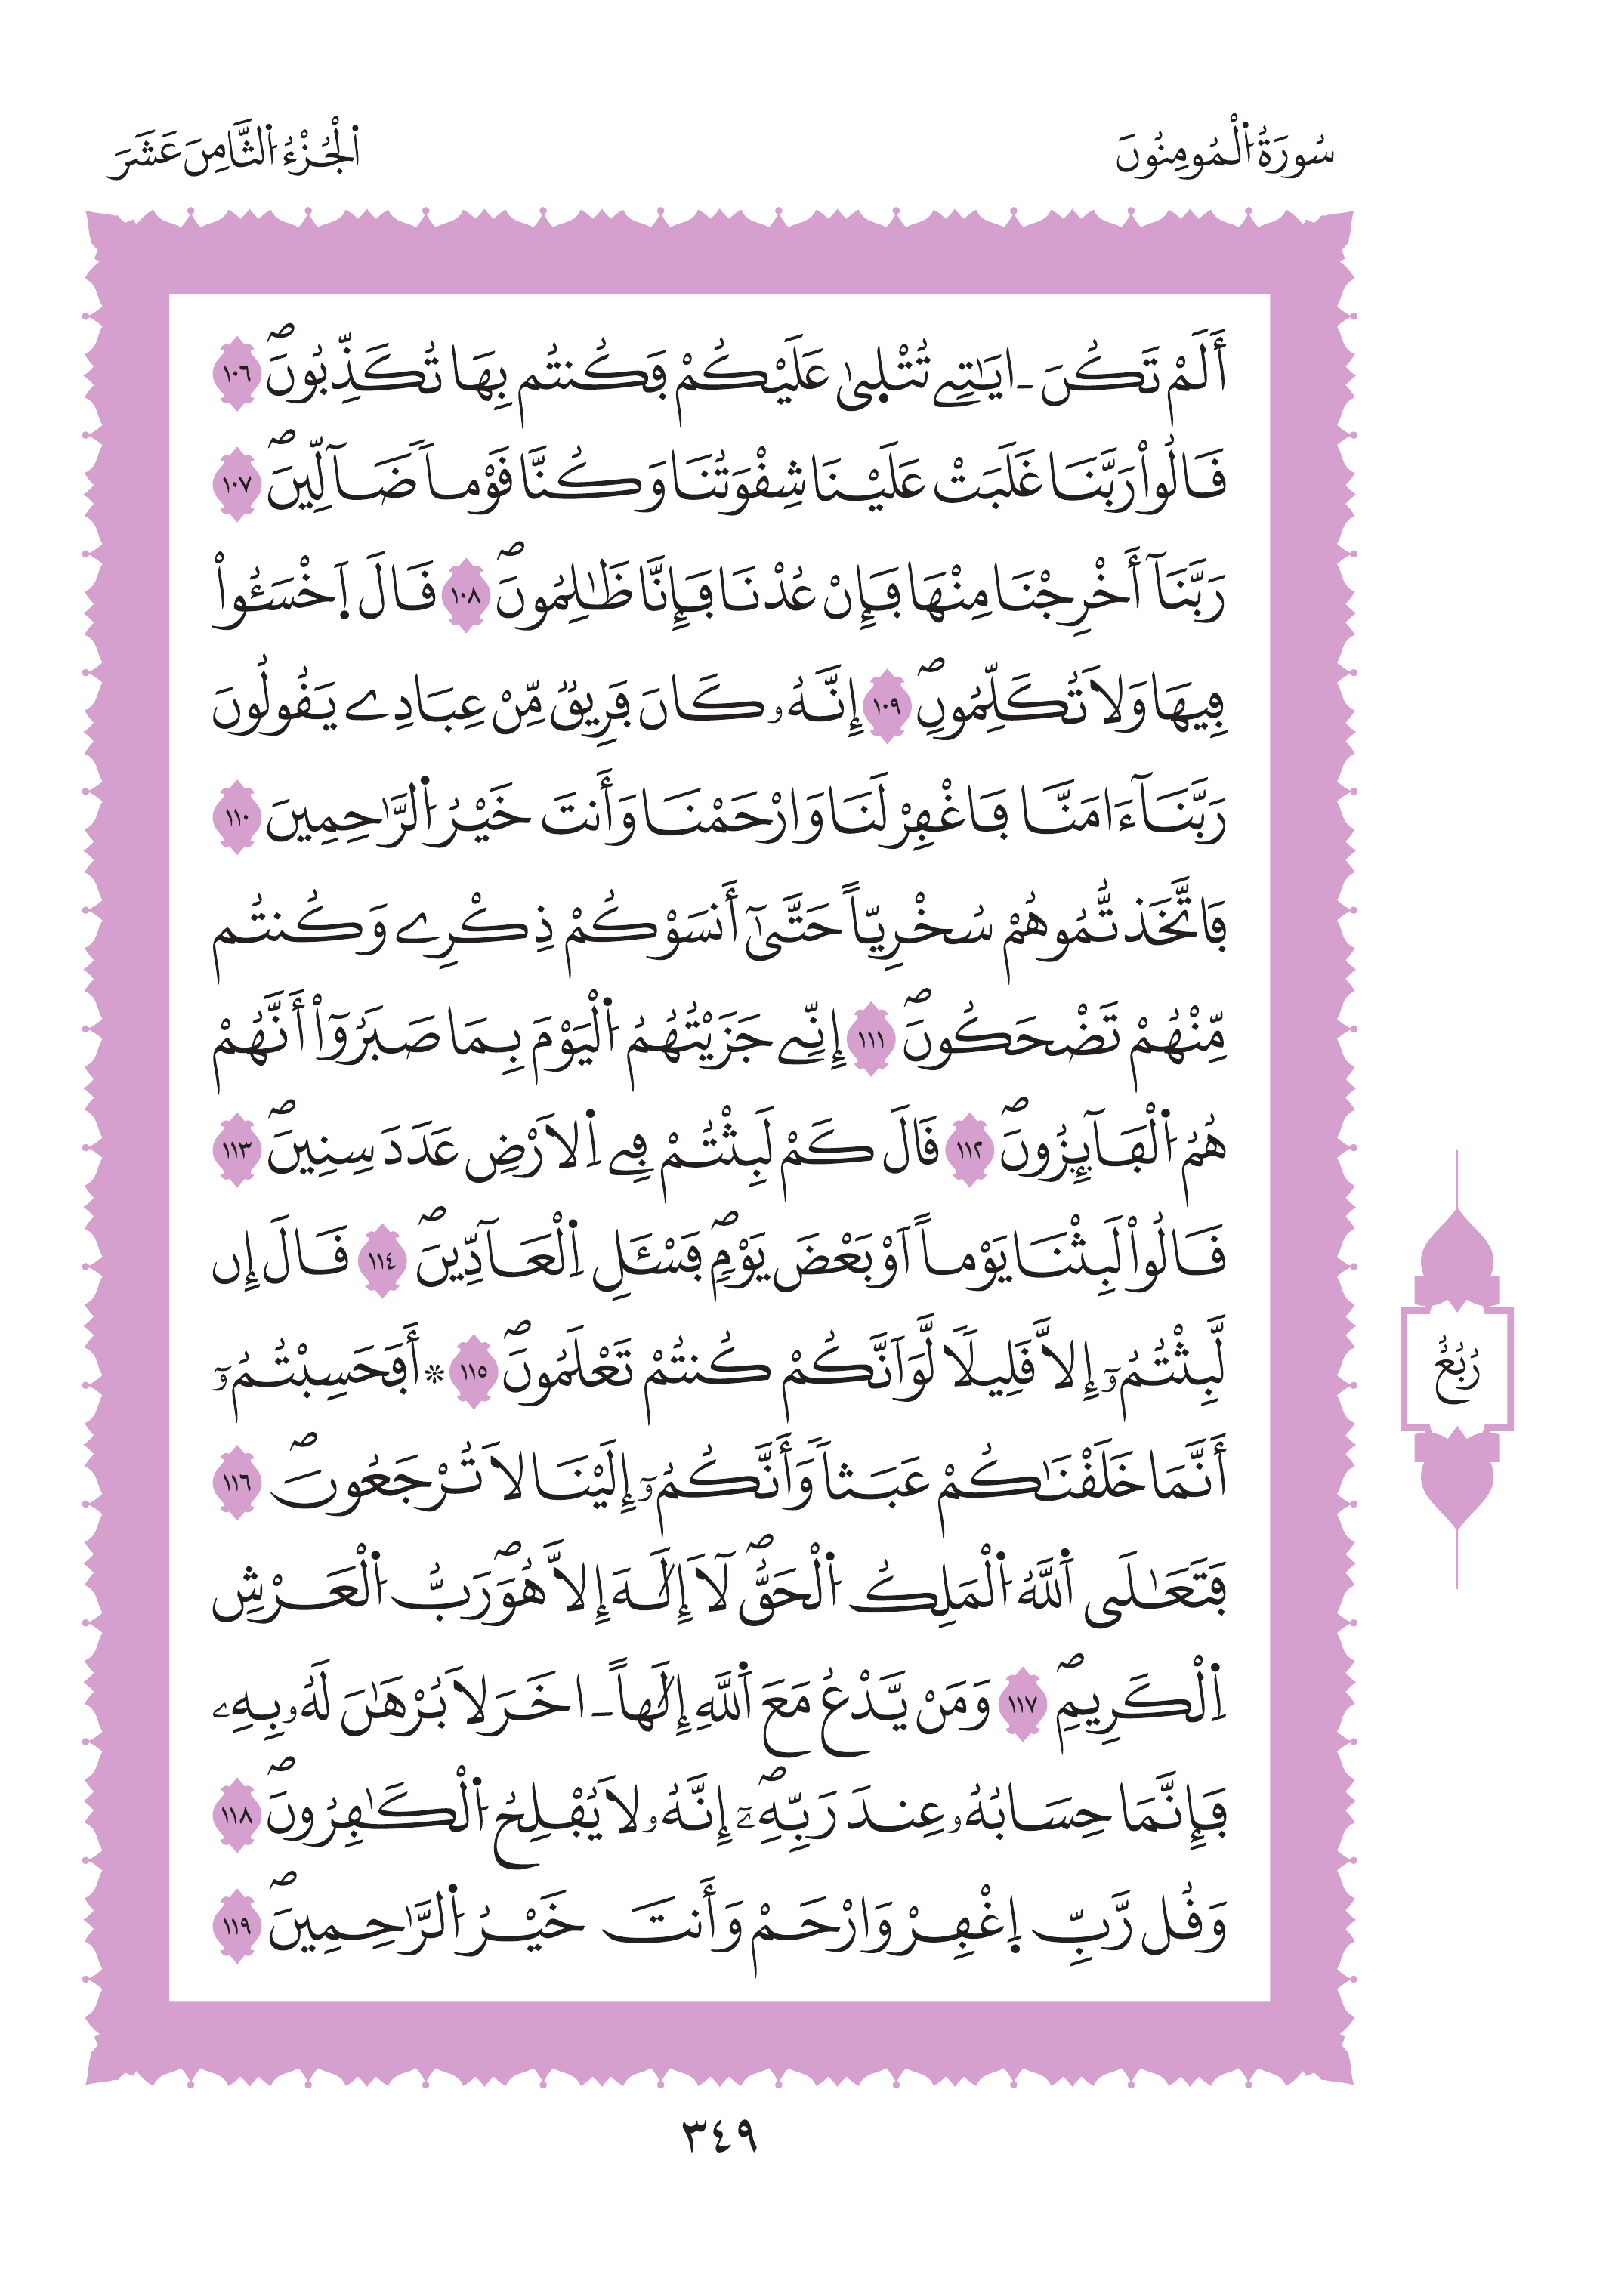 سُورَةُ اُ۬لْمُومِنُونَ
اَ۬لْجُزْءُ اُ۬لثَّامِنَ عَشَرَ
أَلَمْ تَكُنَ ـ ايَٰتِے تُتْل۪يٰ عَلَيْكُمْ فَكُنتُم بِهَا تُكَذِّبُونَۖ ١٠٦
قَالُواْ رَبَّنَا غَلَبَتْ عَلَيْنَا شِقْوَتُنَا وَكُنَّا قَوْماٗ ضَآلِّينَۖ ١٠٧
رَبَّنَآ أَخْرِجْنَا مِنْهَا فَإِنْ عُدْنَا فَإِنَّا ظَٰلِمُونَۖ ١٠٨ قَالَ اَ۪خْسَـُٔواْ
فِيهَا وَلَا تُكَلِّمُونِۖ ١٠٩ إِنَّهُۥ كَانَ فَرِيقٞ مِّنْ عِبَادِے يَقُولُونَ
رَبَّنَآ ءَامَنَّا فَاغْفِرْ لَنَا وَارْحَمْنَا وَأَنتَ خَيْرُ اُ۬لرَّٰحِمِينَ ١١٠
فَاتَّخَذتُّمُوهُمْ سُخْرِيّاً حَتَّيٰٓ أَنسَوْكُمْ ذِكْرِے وَكُنتُم
مِّنْهُمْ تَضْحَكُونَۖ ١١١ إِنِّے جَزَيْتُهُمُ اُ۬لْيَوْمَ بِمَا صَبَرُوٓاْ أَنَّهُمْ
هُمُ اُ۬لْفَآئِزُونَۖ ١١٢ قَالَ كَمْ لَبِثْتُمْ فِے اِ۬لَارْضِ عَدَدَ سِنِينَۖ ١١٣
قَالُواْ لَبِثْنَا يَوْماً اَوْ بَعْضَ يَوْمٖۖ فَسْـَٔلِ اِ۬لْعَآدِّينَۖ ١١٤ قَالَ إِن
لَّبِثْتُمُۥٓ إِلَّا قَلِيلاٗ لَّوَ اَنَّكُمْ كُنتُمْ تَعْلَمُونَۖ ١١٥ ۞ أَفَحَسِبْتُمُۥٓ
أَنَّمَا خَلَقْنَٰكُمْ عَبَثاٗ وَأَنَّكُمُۥٓ إِلَيْنَا لَا تُرْجَعُونَۖ ١١٦
فَتَعَٰلَي اَ۬للَّهُ اُ۬لْمَلِكُ اُ۬لْحَقُّۖ لَآ إِلَٰهَ إِلَّا هُوَۖ رَبُّ اُ۬لْعَرْشِ
اِ۬لْكَرِيمِۖ ١١٧ وَمَنْ يَّدْعُ مَعَ اَ۬للَّهِ إِلَٰهاً ـ اخَرَ لَا بُرْهَٰنَ لَهُۥ بِهِۦ
فَإِنَّمَا حِسَابُهُۥ عِندَ رَبِّهِۦٓۖ إِنَّهُۥ لَا يُفْلِحُ اُ۬لْكَٰفِرُونَۖ ١١٨
وَقُل رَّبِّ اِ۪غْفِرْ وَارْحَمْ وَأَنتَ خَيْرُ اُ۬لرَّٰحِمِينَۖ ١١٩
رُبُعُ
٣٤٩